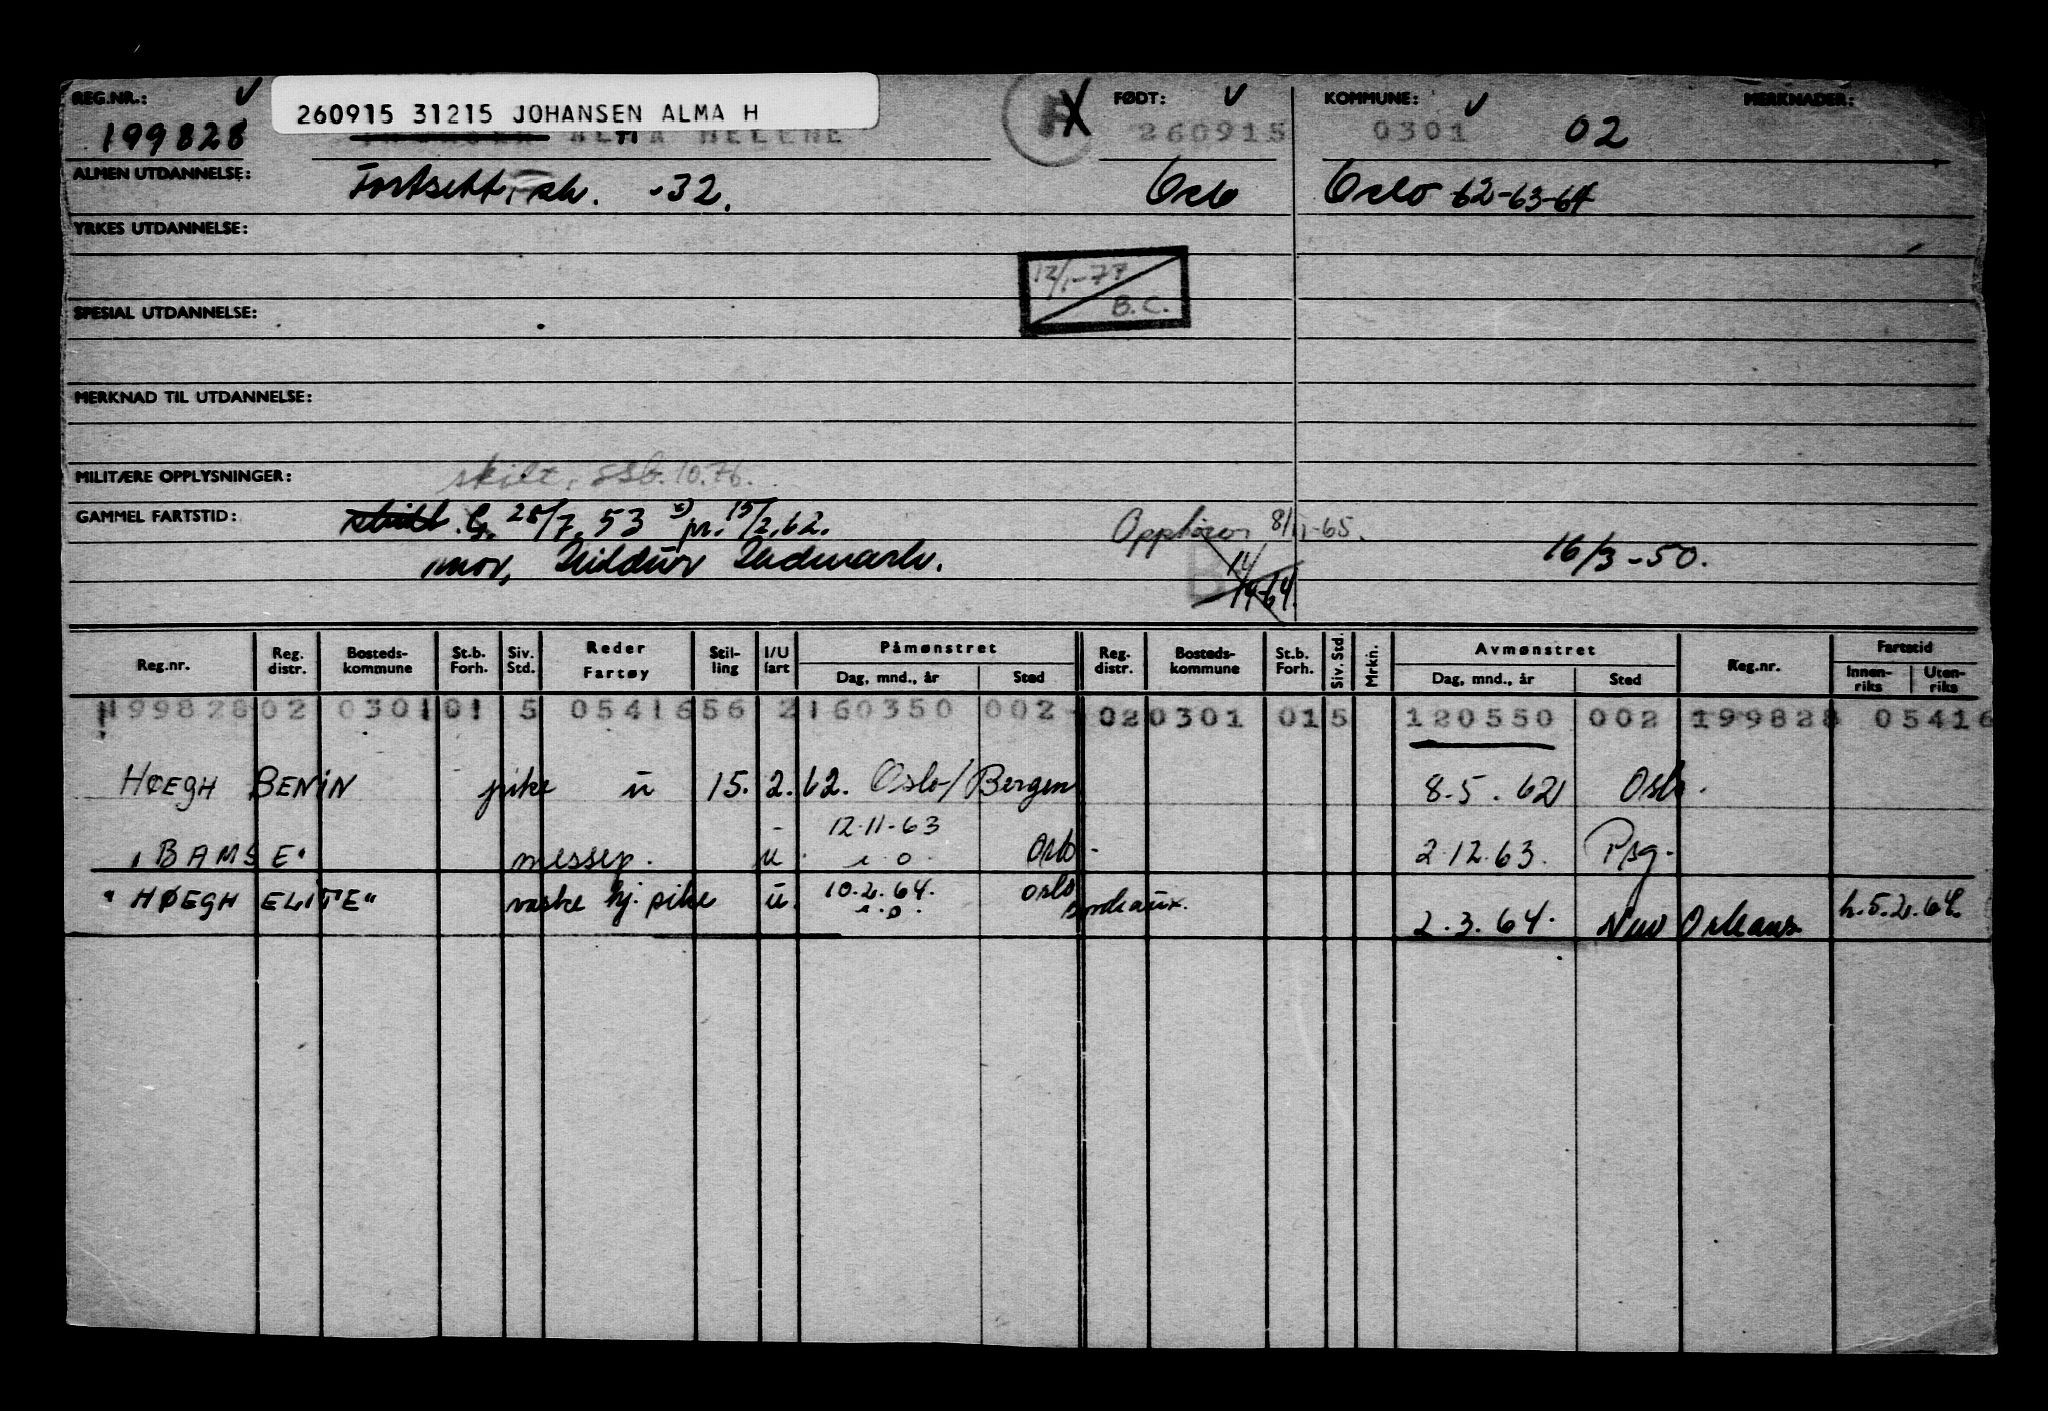 REG.NR.: 260915 31215 JOHANSEN ALMA H FØDT: KOMMUNE: MERKNADER:
199828 ALMA HELENE 260915 0301 02
ALMEN UTDANNELSE: Fortsett. sk. -32. Oslo Oslo 62-63-64
YRKES UTDANNELSE:
12/1-77
B.C.
SPESIAL UTDANNELSE:
MERKNAD TIL UTDANNELSE:
MILITÆRE OPPLYSNINGER: skilt, SSB. 10.76.
GAMMEL FARTSTID: skilt G. 25/7.53 x) pr. 15/2.62. Opphører 8/11-65.
mor, Hildur Hedmark. 16/3-50.
Reg.nr. Reg. distr. Bosteds-kommune St.b. Forh. Siv. Std. Reder Fartøy Stil-ling I/U fart Påmønstret Reg. distr. Bosteds-kommune St.b. Forh. Siv. Std. Mrkn. Avmønstret Reg.nr. Fartstid
Dag, mnd., år Sted Dag, mnd., år Sted Innen-riks Uten-riks
199828 02 0301 01 5 05416 56 2 160350 002 02 0301 01 5 120550 002 199828 05416
HØEGH BENIN pike u 15.2.62. Oslo/Bergen 8.5.62 Oslo.
12.11-63
"BAMSE" messep. u. i.o. Oslo - 2.12.63. Psg.
"HØEGH ELITE" vaske hj. pike u. 10.2.64. Oslo h.5.2.64.
i.o. Bordeaux. 2.3.64. New Orleans